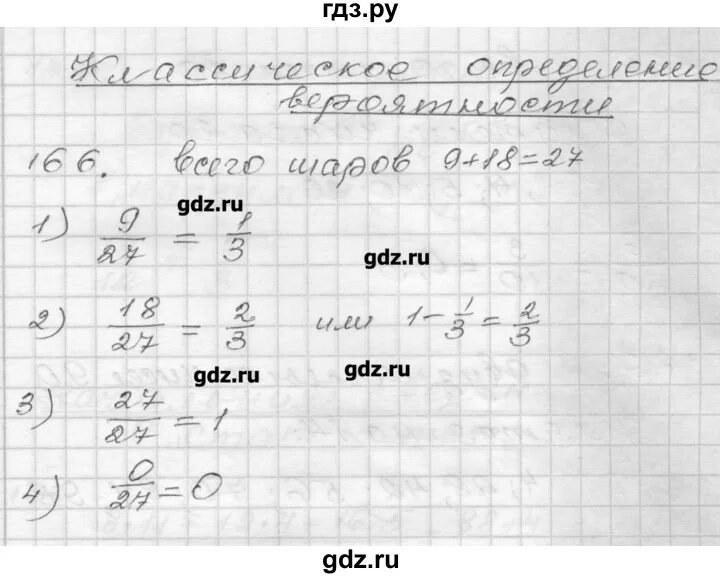 гдз.ру
Классическое определение
вероятности
166. всего шаров 9+18=27
gdz.ru
1) 9/27 = 1/3
gdz.ru
2) 18/27 = 2/3 или 1-1/3=2/3
gdz.ru gdz.ru
3) 27/27 = 1
4) 0/27 = 0
gdz.ru
gdz.ru